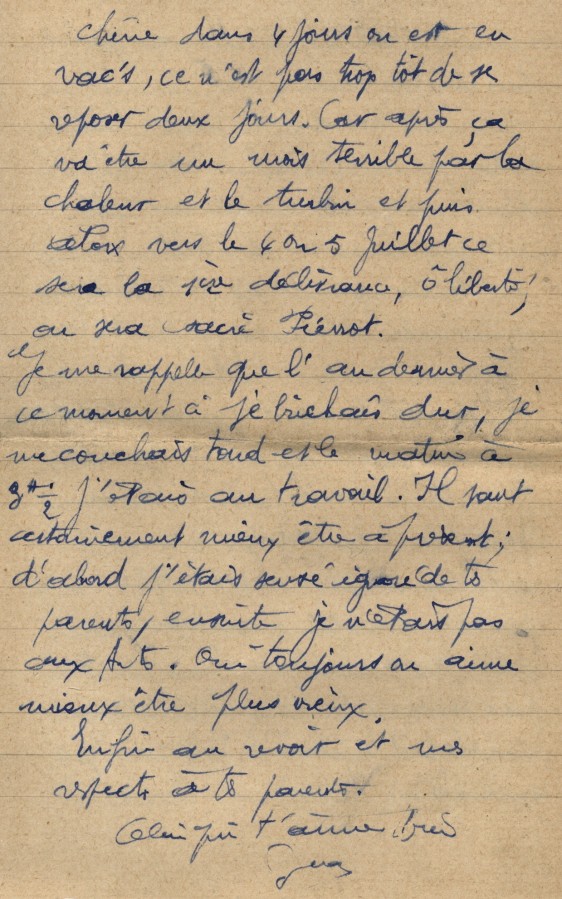 chérie dans 4 jours on est en
vac's, ce n'est pas trop tôt de se
reposer deux jours. Car après, ça
va être un mois terrible par la
chaleur et le turbin et puis
alors vers le 4 ou 5 Juillet ce
sera la 1ère délivrance, ô liberté!
on sera sacré Pierrot.
Je me rappelle que l'an dernier à
ce moment là je bûchais dur, je
me couchais tard et le matin à
3H 1/2 j'étais au travail. Il vaut
certainement mieux être à présent;
d'abord j'étais sensé ignoré de ts
parents, ensuite je n'étais pas
aux Arts. Oui toujours on aime
mieux être plus vieux.
Enfin au revoir et mes
respects à ts parents.
Celui qui t'aime bien